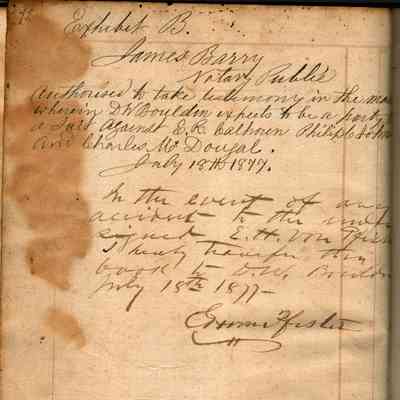 Exhibit B.
James Barry
Notary Public
authorised to take testimony in the
wherein D W Bouldin expects to be a party
a Suit against E. K. Calhoun
and Charles Mc Dougal.
July 18th 1877.
In the event of any
accident to the under
signed E. H. Von
I hereby transfer this
book to D. W.
July 18th 1877-